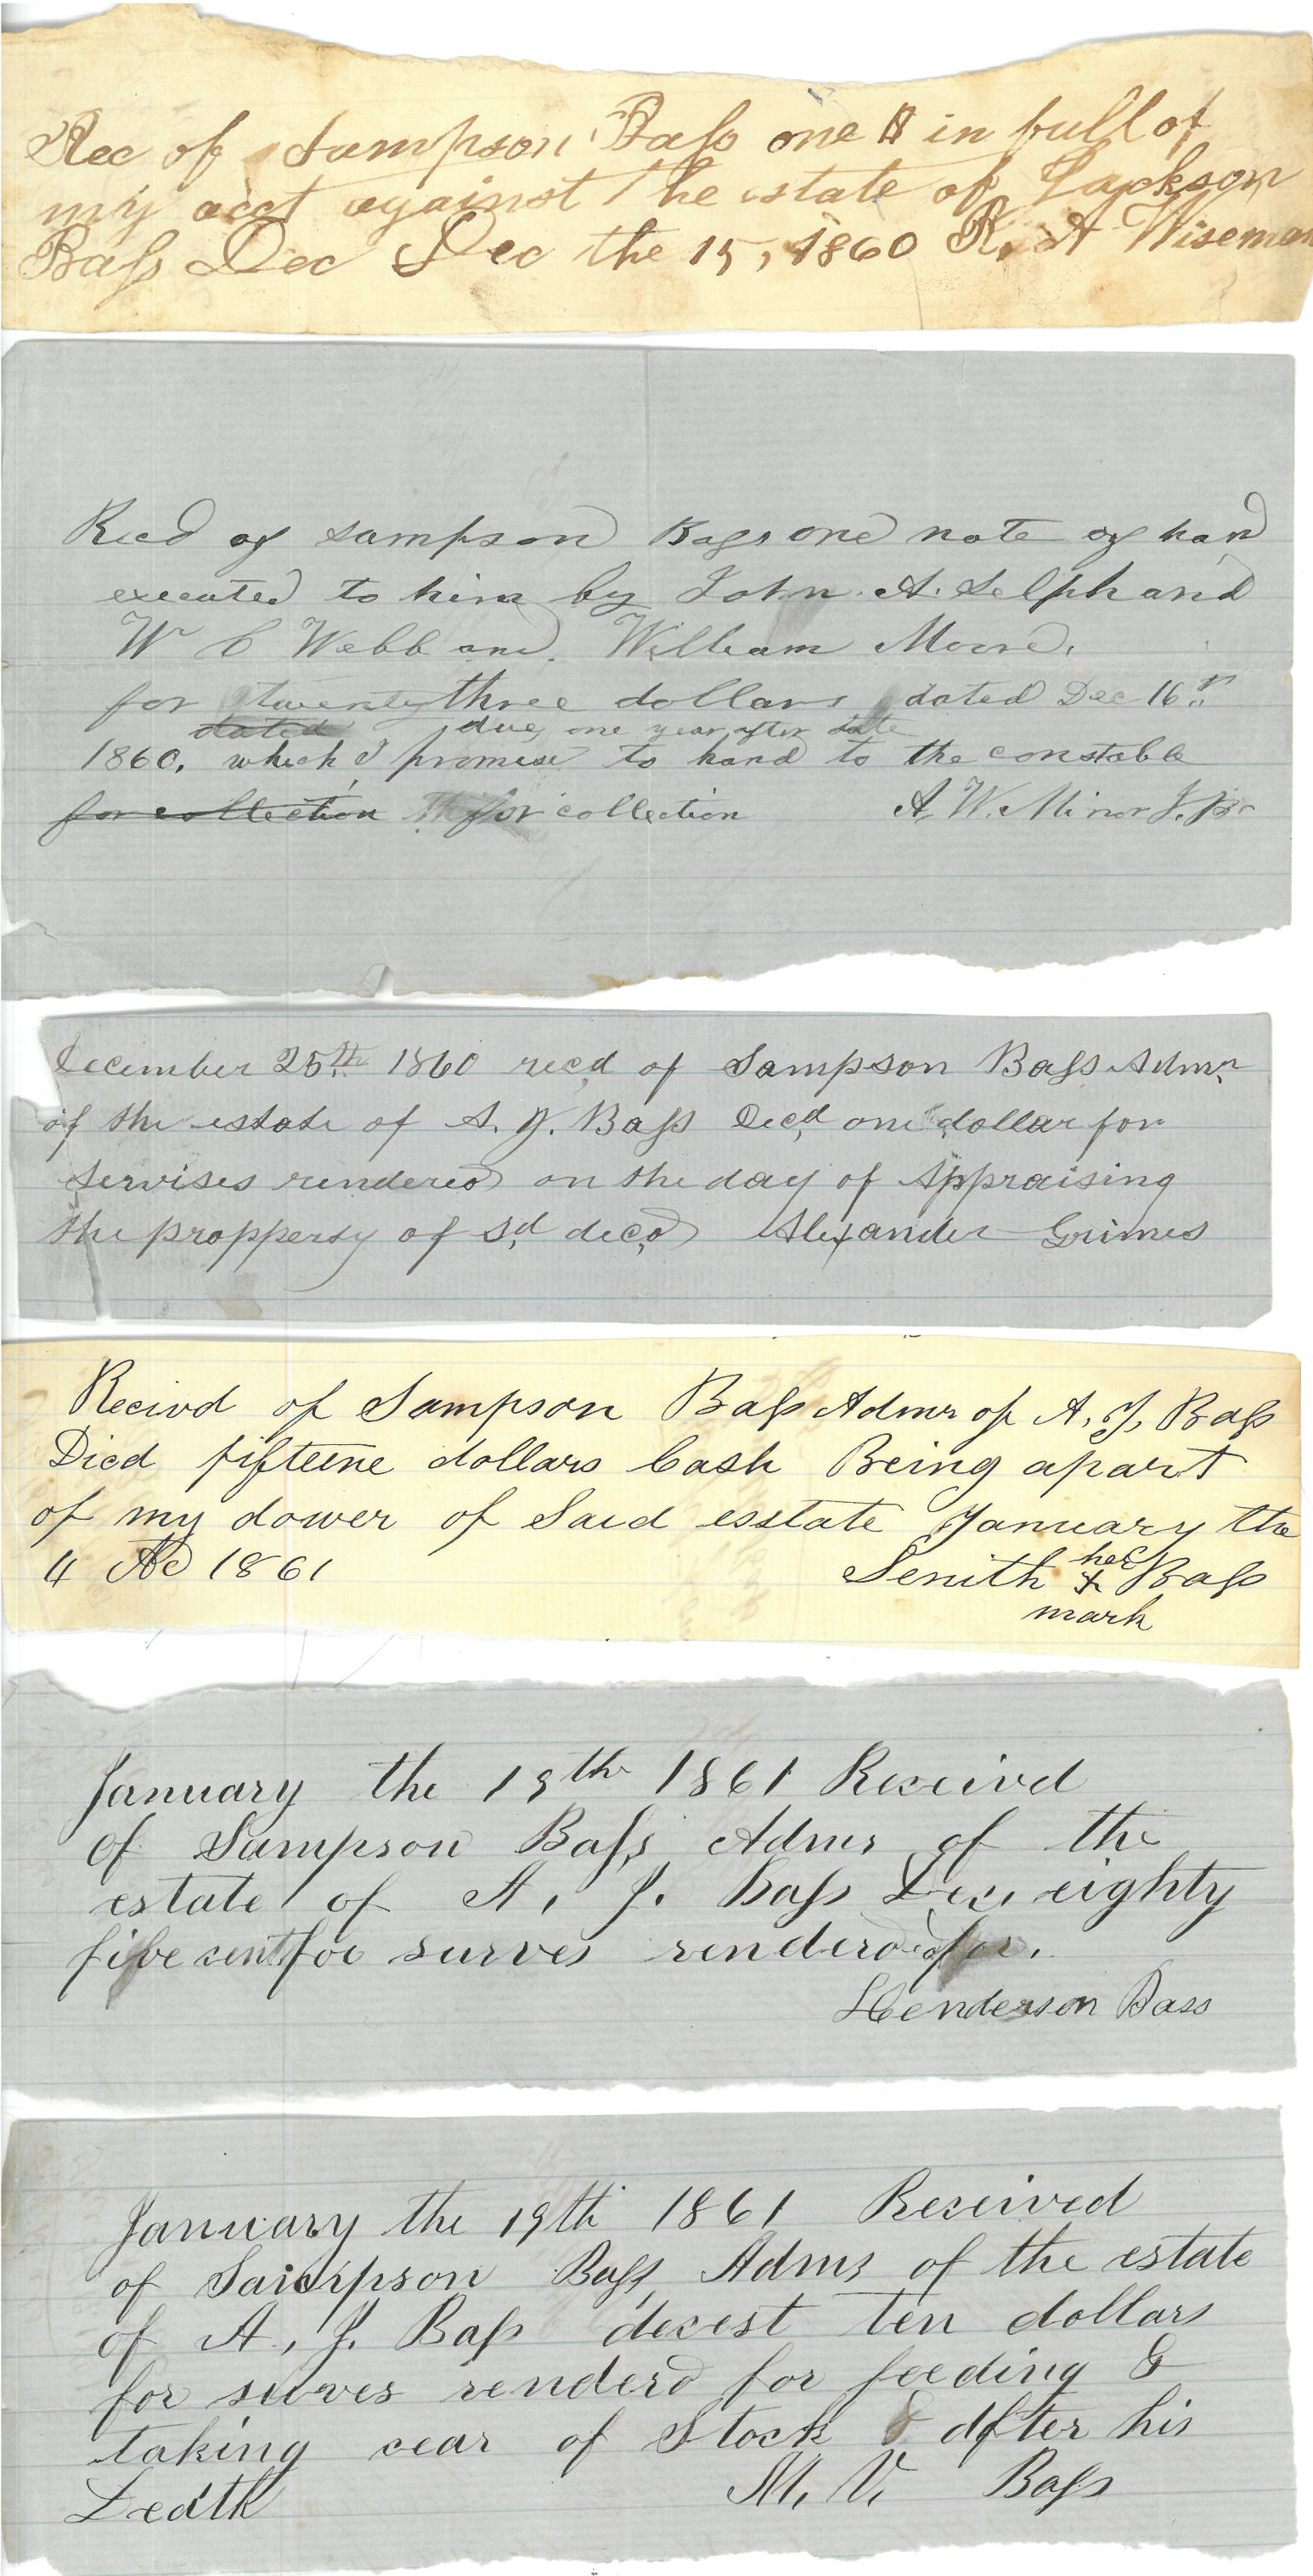 Rec of Sampson Bass one $ in full of
my acct against The estate of Jackson
Bass Dec Dec the 15, 1860 R. A Wiseman
Recd of Sampson Bass one note of hand
executed to him by John. A. Selph and
W C Webb and. William Moore,
for twenty three dollars dated Dec 16th
dated due, one year after date
1860. which I promise to hand to the constable
for collection for collection A. W. Minor J. P.
December 25th 1860 recd of Sampson Bass Admr
of the estate of A. J. Bass Decd one dollar for
servises rendered on the day of Appraising
the propperty of sd decd Alexander Grimes
Recivd of Sampson Bass Admr of A, J, Bass
Dicd fifteene dollars Cash Being apart
of my dower of Said esstate January the
4 AD 1861 Senith her x Bass
mark
January the 19th 1861 Receivd
of Sampson Bass Admr of the
estate of A, J. Bass Dec, eighty
five cents for surves renderd for.
Henderson Bass
January the 19th 1861 Received
of Sampson Bass Admr of the estate
of A, J. Bass decest ten dollars
for surves renderd for feeding &
taking cear of Stock & after his
Death M, V, Bass